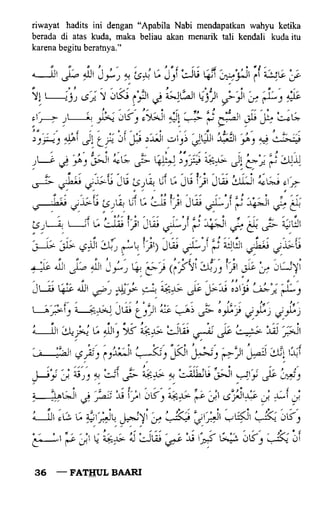 riwayat hadits ini dengan "Apabila Nabi mendapatkan wahyu ketika
berada di atas kuda, maka beliau akan menarik tali kendali kuda itu
karena begitu beratnya."
عن عائشة أم المؤمنين أنها قالت أول ما بدئ به رسول الله صلى الله
عليه وسلم من الوحي الرؤيا الصالحة في النوم فكان لا يرى رؤيا إلا
جاءت مثل فلق الصبح ثم حبب إليه الخلاء وكان يخلو بغار حراء
فيتحنث فيه وهو التعبد الليالي ذوات العدد قبل أن ينزع إلى أهله ويتزود
لذلك ثم يرجع إلى خديجة فيتزود لمثلها حتى جاءه الحق وهو في غار
حراء فجاءه الملك فقال اقرأ قال ما أنا بقارئ قال فأخذني فغطني حتى
بلغ مني الجهد ثم أرسلني فقال اقرأ قلت ما أنا بقارئ فأخذني فغطني
الثانية حتى بلغ مني الجهد ثم أرسلني فقال اقرأ فقلت ما أنا بقارئ
فأخذني فغطني الثالثة ثم أرسلني فقال (اقرأ باسم ربك الذي خلق خلق
الإنسان من علق اقرأ وربك الأكرم) فرجع بها رسول الله صلى الله عليه
وسلم يرجف فؤاده فدخل على خديجة بنت خويلد رضي الله عنها فقال
زملوني زملوني فزملوه حتى ذهب عنه الروع فقال لخديجة وأخبرها
الخبر لقد خشيت على نفسي فقالت خديجة كلا والله ما يخزيك الله
أبدا إنك لتصل الرحم وتحمل الكل وتكسب المعدوم وتقري الضيف
وتعين على نوائب الحق فانطلقت به خديجة حتى أتت به ورقة بن نوفل
بن أسد بن عبد العزى ابن عم خديجة وكان امرأ تنصر في الجاهلية
وكان يكتب الكتاب العبراني فيكتب من الإنجيل بالعبرانية ما شاء الله
أن يكتب وكان شيخا كبيرا قد عمي فقالت له خديجة يا ابن عم اسمع
36 — FATHUL BAARI